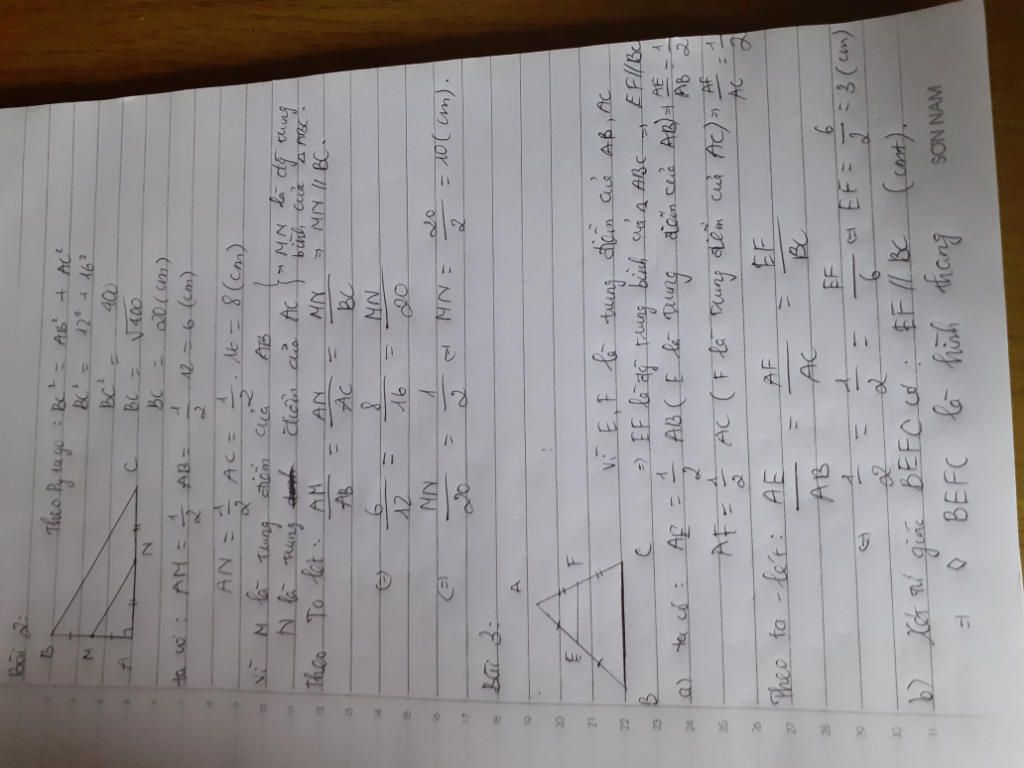 Bài 2:
B
M
A
N
C
Theo Pytago: BC² = AB² + AC²
BC² = 12² + 16²
BC² = 400
BC = √400
BC = 20 (cm)
ta có: AM = 1/2 AB = 1/2 . 12 = 6 (cm)
AN = 1/2 AC = 1/2 . 16 = 8 (cm)
Vì M là trung điểm của AB
N là trung điểm của AC } => MN là đg trung bình của Δ ABC
=> MN // BC.
Theo Ta lét: AM/AB = AN/AC = MN/BC
(=) 6/12 = 8/16 = MN/20
(=) MN/20 = 1/2 (=) MN = 20/2 = 10 (cm).
Bài 3:
A
E
F
B
C
Vì E, F là trung điểm của AB, AC
=> EF là độ trung bình của Δ ABC => EF // BC
a) ta có: AE = 1/2 AB (E là trung điểm của AB) => AE/AB = 1/2
AF = 1/2 AC (F là trung điểm của AC) => AF/AC = 1/2
Theo ta-lét: AE/AB = AF/AC = EF/BC
(=) 1/2 = 1/2 = EF/6 (=) EF = 6/2 = 3 (cm)
b) Xét tứ giác BEFC có: EF // BC (cmt).
=> ◊ BEFC là hình thang
SON NAM